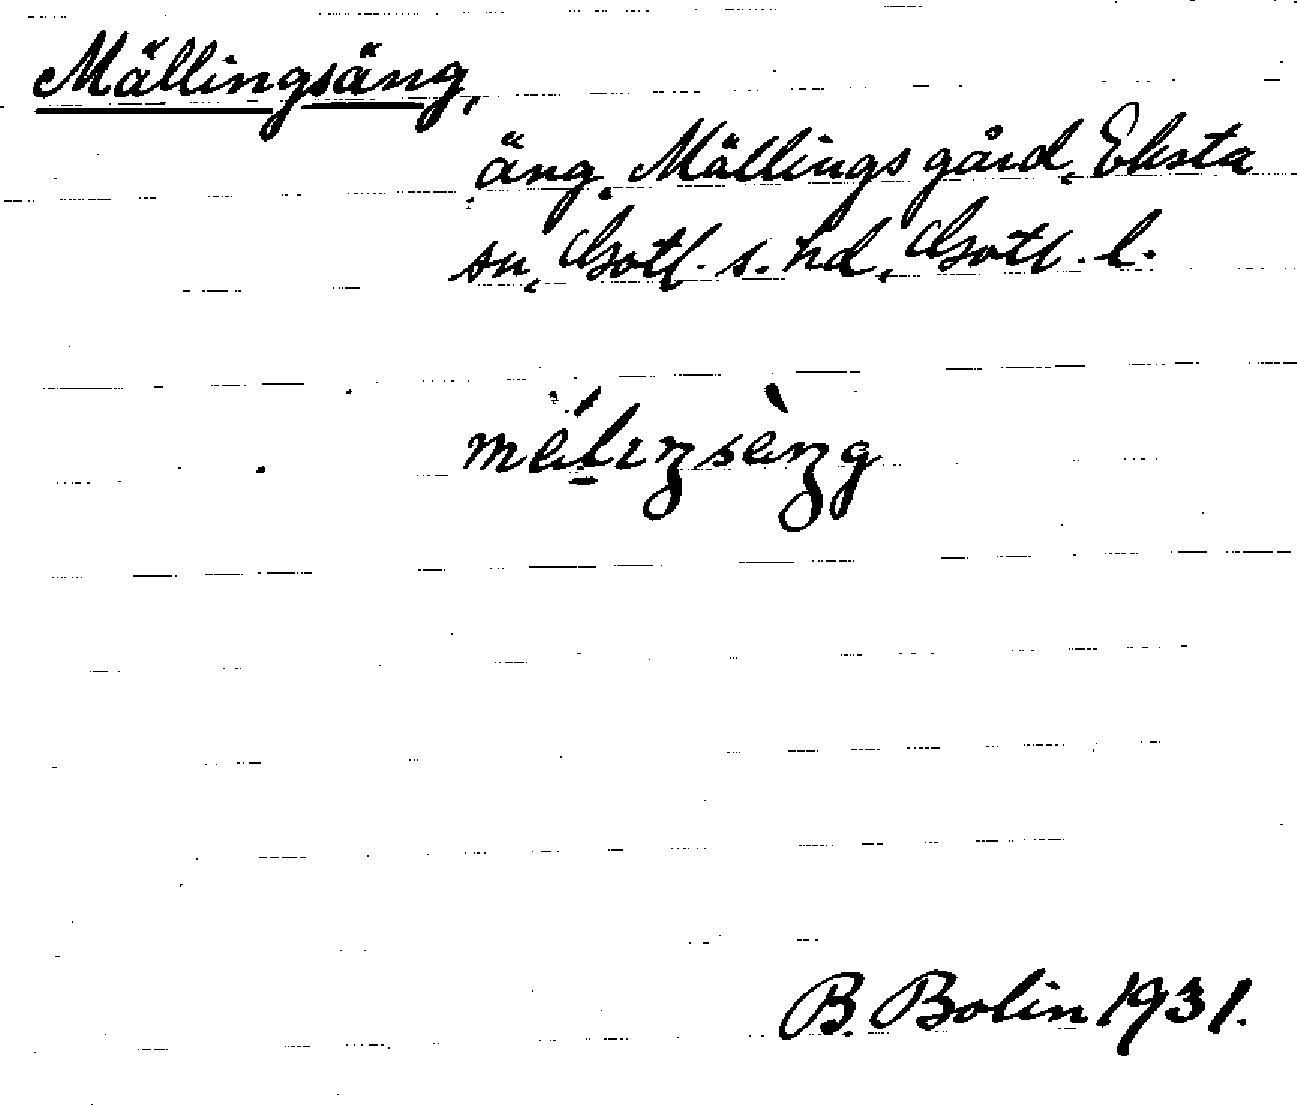 Mällingsäng,
äng, Mällings gård, Eksta
sn, Gotl. s. hd, Gotl. l.
mä́lıŋsä̀ŋg
B. Bolin 1931.